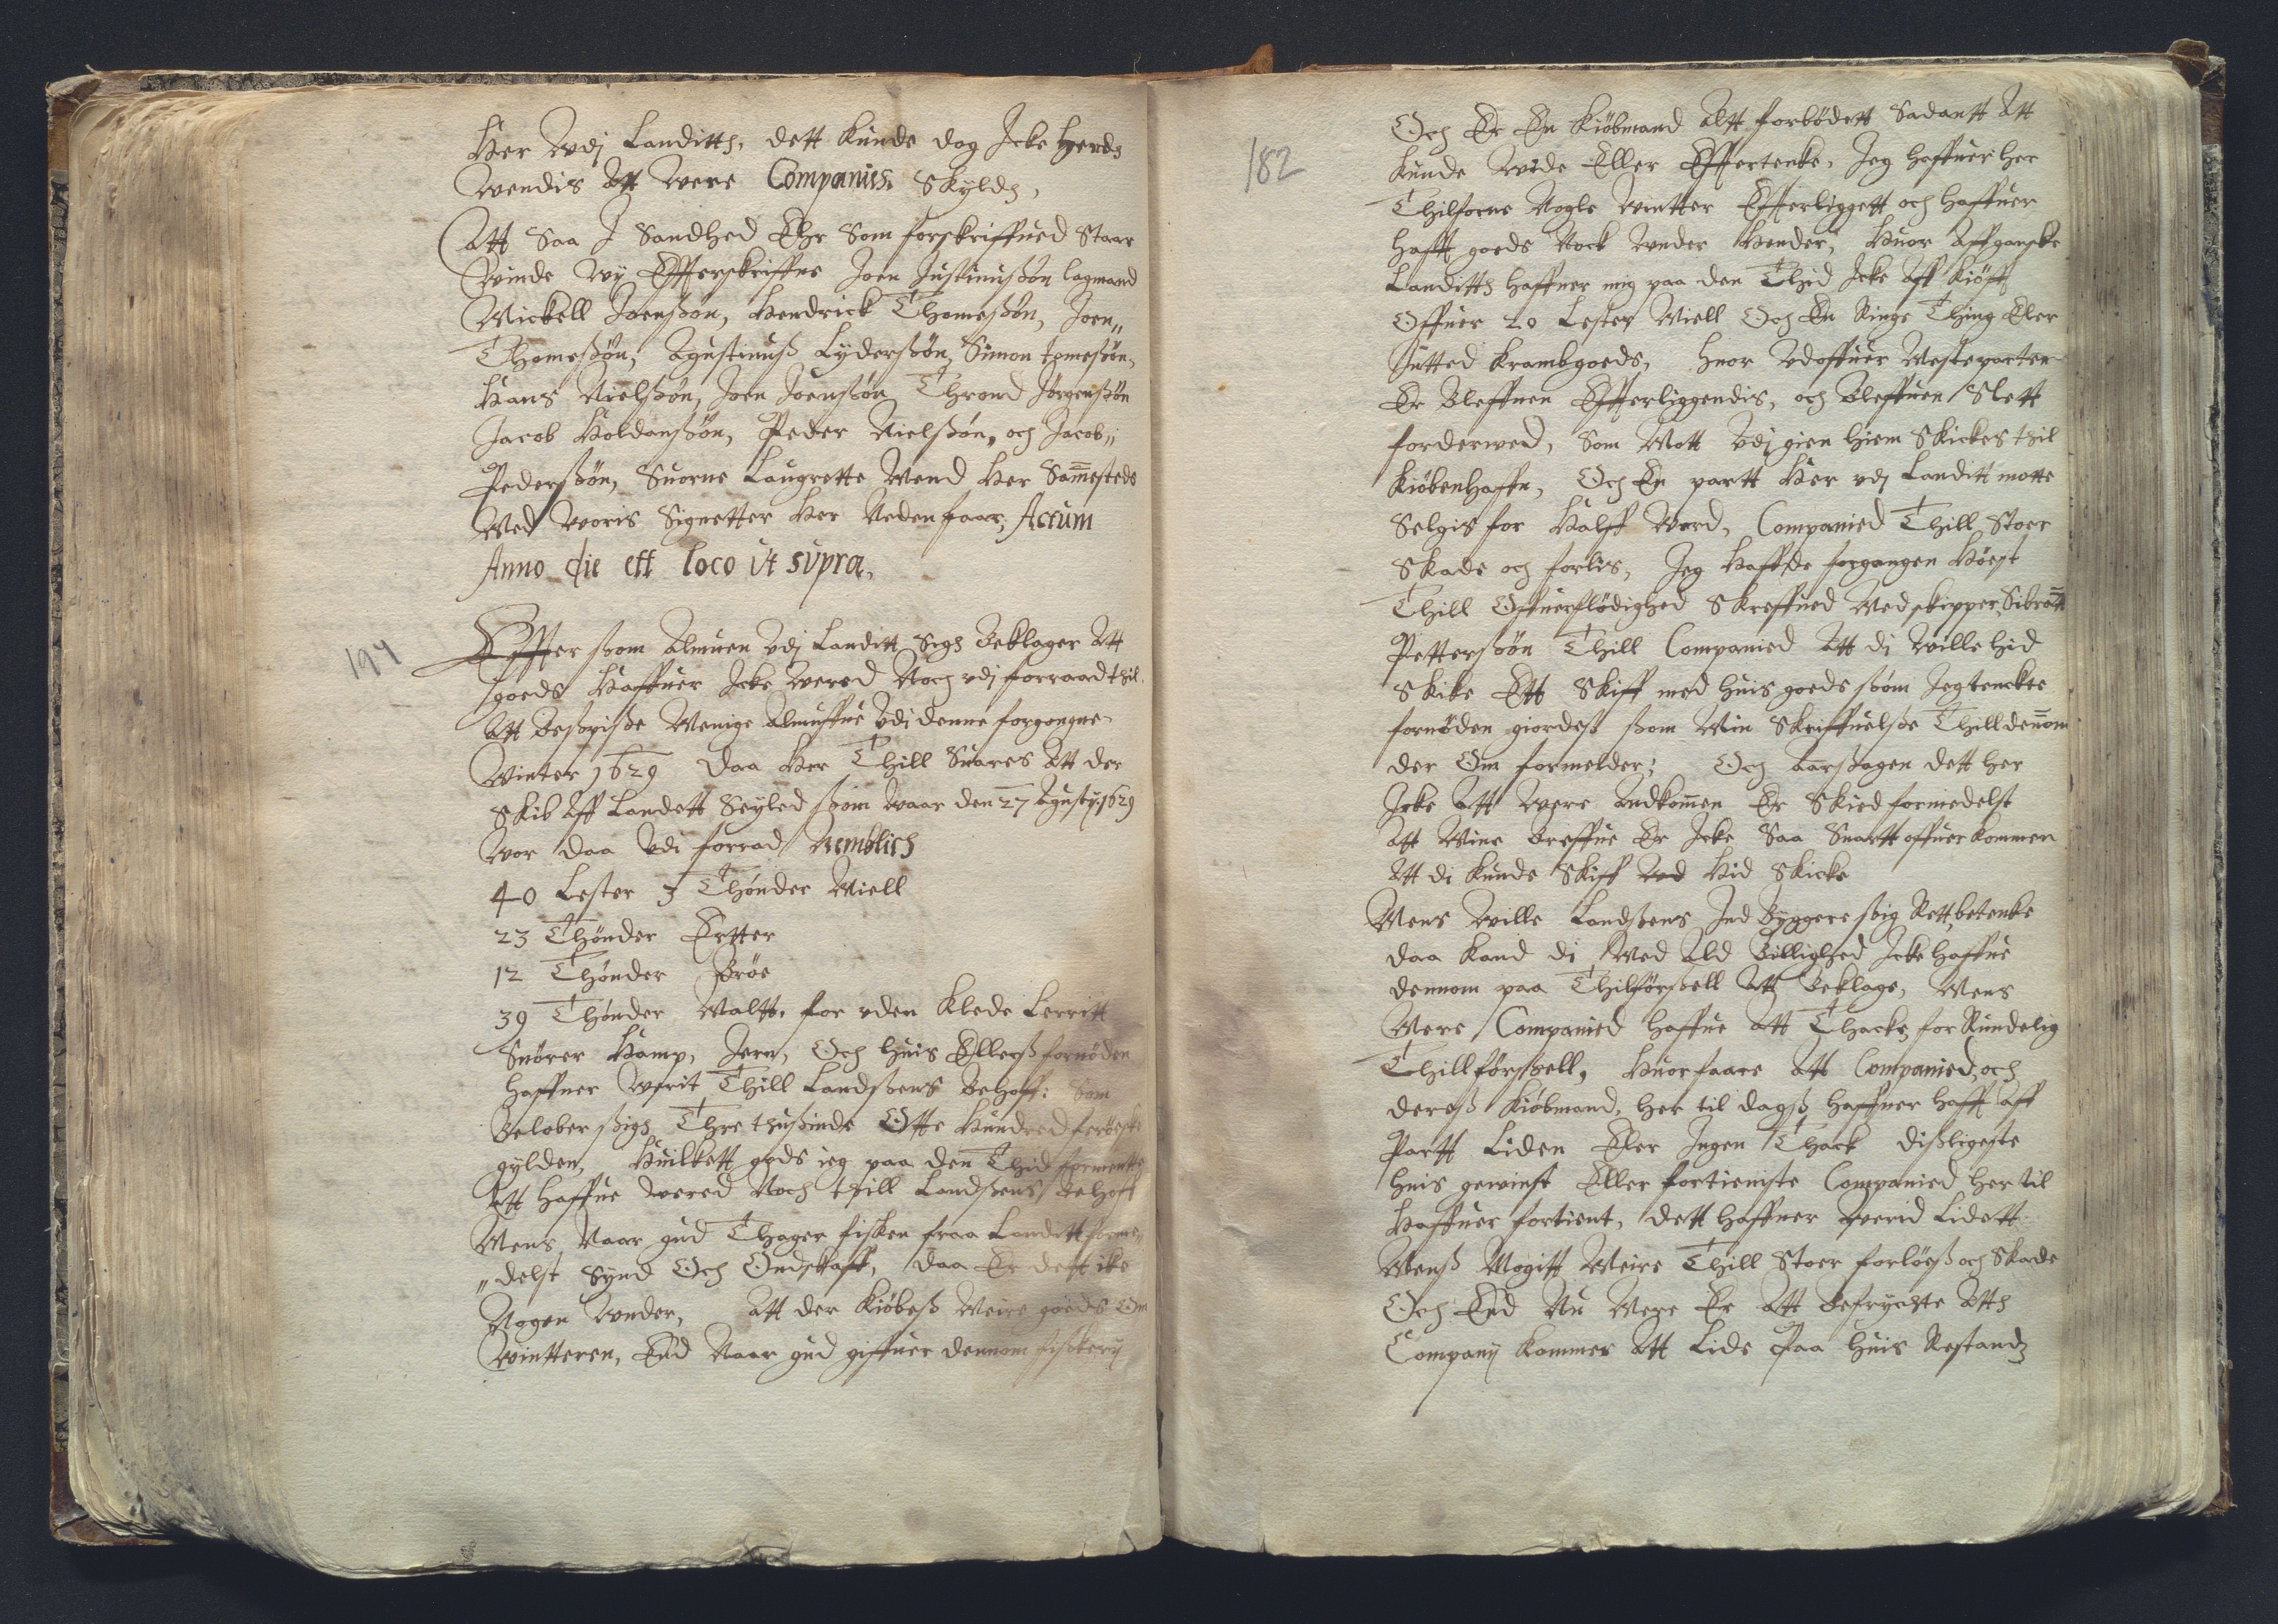 Her Wdj Landitth, dett kunde dog Icke herds
Wendis Att Were Companies Skyldh,
Att Saa I Sandhed Ehr Som forskriffued Staar
Winde Wÿ Effterskriffne Joen Justinußøn lagmand
Mickell Joenßøn, Hendrick Thomeßøn, Joen„
Thomeßøn, Agustinuß Lÿderßøn, Simon tomeßøn,
Hans Nielßøn, Joen Joenßøn Thrond Jørgenßøn
Jacob Holdanßøn, Peder Nielßøn, och Jacob„
Pederßøn, Suorne Laugrette Mend Her Sammesteds
Med Woris Signetter Her Neden faar, Actum
Anno die ett loco ut supra,
194
Effter ßom Almuen Vdj Landitt Sigh Beklager Att
goeds Haffuer Icke Wered Noch vdj forraad thil
Att Beßpiße Menige Almuffue Vdi denne forgongne
Winter 1629 Daa Her Thill Suares Att der
Skib Aff Landett Seÿled ßom Waar den 27 Agustÿ 1629
Wor daa Vdi forrad Nemblich
40 Lester 3 Thønder Miell
23 Thønder Ertter
12 Thønder Brøe
39 Thønder Maltt, for vden Klede Lerritt
Snører Hamp, Jern, Och huis Ellerß fornøden
haffuer Werit Thill Landßens Behoff: Som
Belober ßigh Thre thußinde Otte Hundred ferøeske
gÿlden, Huilkett gods ieg paa den Thid formentte
Att Haffue Wered Noch thill Landßens Behoff
Mens Naar gud Thager fisken fraa Landitt forme„
„delst Sÿnd Och Ondskaff, daa Er dett ike
Nogen Wnder, Att der Kiøbeß Meire goeds Om
Wintteren, End Naar gud giffuer dennom fiskerÿ
182
Och Er En Kiøbmand Alt forbødett Sadantt Att
Kunde Wide Eller Efftertenke, Jeg haffuer her
Thilforne Nogle Wintter Effterliggett och haffuer
hafft goeds Nock Wnder Hender, Huor Aff ganske
Landitth haffuer mig paa den Thid Icke Aff Kiøfft
Offuer 20 Lester Miell Och En Ringe Thing Eler
Inttet krambgoeds, huor Vdoffuer Mesteparten
Er Bleffuen Effterliggendis, och Bleffuen Slett
forderwed, Som Mott Vdj gien hiem Skickes thil
Kiøbenhaffn, Och En partt Her vdj Landitt motte
Selgis for Halff Werd, Companied Thill Stoer
Skade och forlis, Jeg Haffde forgangen Høest
Thill Offuerflødighed Skreffued Med skipper Sibrantt
Petterßøn Thill Companied Att di Wille hid
Skike Ett Skiff med huis goeds ßom Jeg tenckte
fornøden giordeß ßom Min Skriffuelße Thill dennom
der Om formelder; Och Aarßagen dett her
Icke Att Were Ankommen Er Skied formedelst
Att Mine Breffue Er Icke Saa Snartt offuer kommen
Att di kunde Skiff Hid Skicke
Mens Wille Landßens Ind Bÿggere ßig Rett betenke
daa kand di Med Ald Billighed Icke haffue
dennom paa Thilførßell Att Beklage, Mens
Mere Companied haffue Att Thacke for Rundelig
Thillførßell, Huorfaare Att Companied, och
dereß Kiøbmand, her til dagß haffuer hafft aff
Partt Liden Eler Ingen Thack dißligeste
huis gewinst Eller fortieniste Companied her til
Haffuer fortient, dett haffuer werid Lidett
Menß Mogitt Meire Thill Stoer forløeß och Skade
Och End Nu Mere Er Att Befrÿcte Atth
Companÿ kommer Att Lide Paa huis Restandz